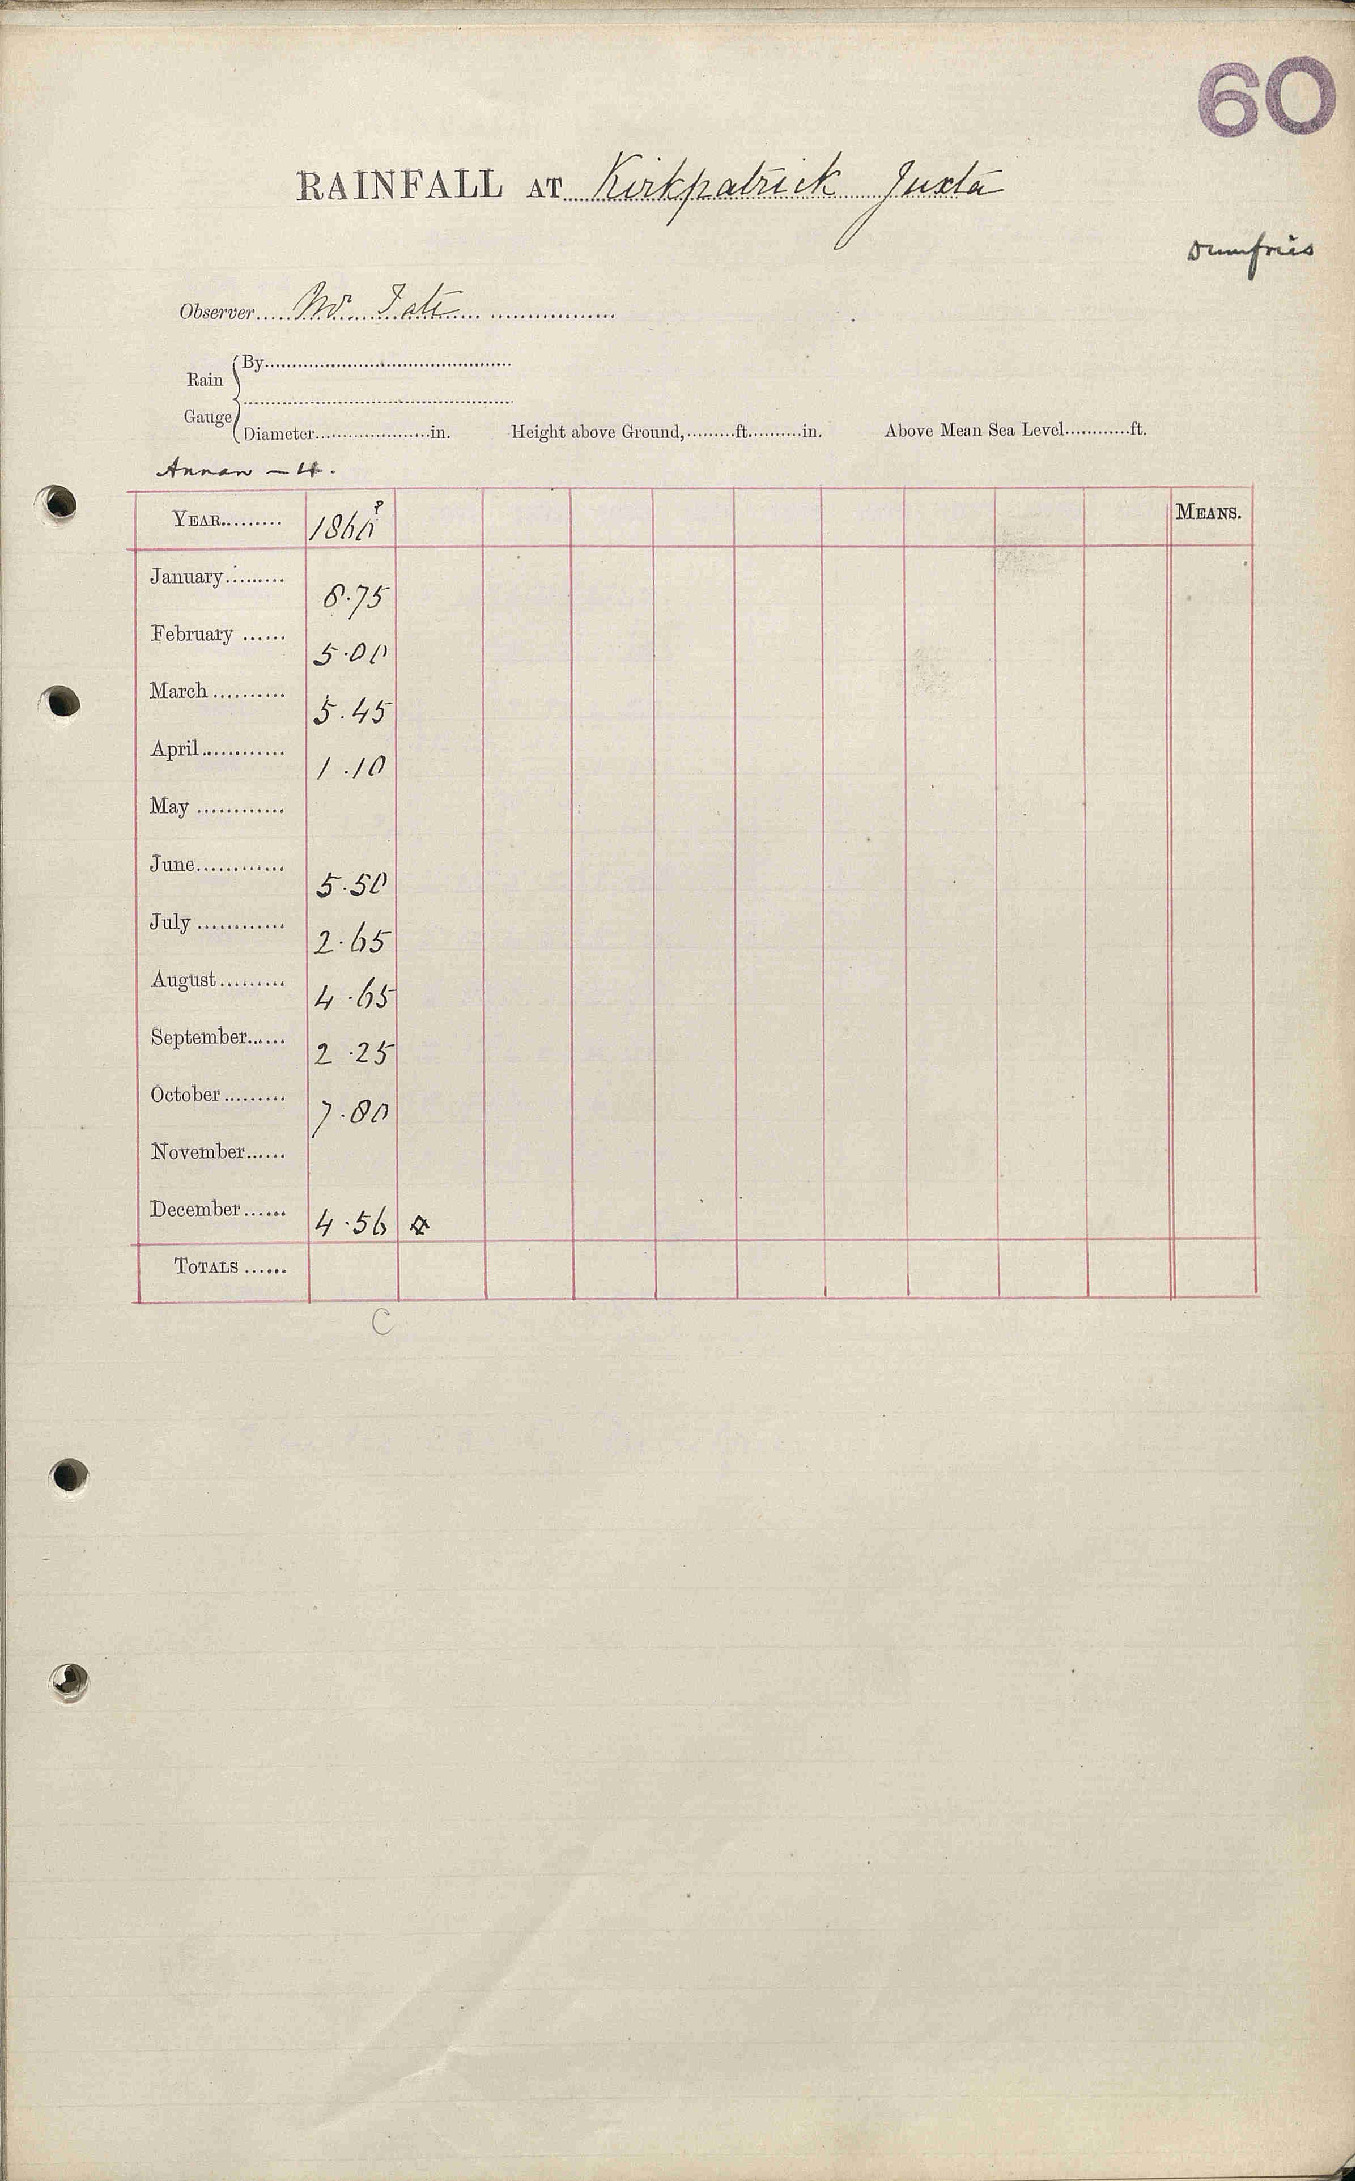 60
RAINFALL AT Kirkpatrick Juxta
Dumfries
Observer Mr Tate
Rain Gauge
By
Diameter in. Height above Ground, ft. in. Above Mean Sea Level ft.
Annan — 4.
YEAR 186 ? MEANS.
January 8.75
February 5.00
March 5.45
April 1.10
May
June 5.50
July 2.65
August 4.65
September 2.25
October 7.80
November
December 4.56
TOTALS
C